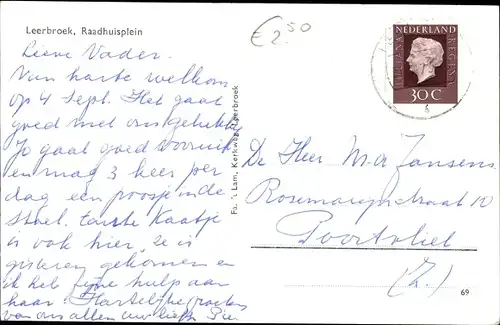 Leerbroek, Raadhuisplein
€ 2.50
Lieve Vader.
Van harte welkom
op 4 Sept. Het gaat
goed met ons
Jo gaat goed vooruit
en mag 3 keer per
dag een poosje in de
stoel. tante Kaatje
is ook hier, ze is
gisteren gekomen en
ik heb fijne hulp aan
haar. Hartelijke groeten
van ons allen uw liefh.
Fa. 't Lam, Kerkweg, Leerbroek
NEDERLAND
JULIANA REGINA
30 C
De Heer M. A Jansens
Rosemarijnstraat 10
Poortvliet
(Z.)
69